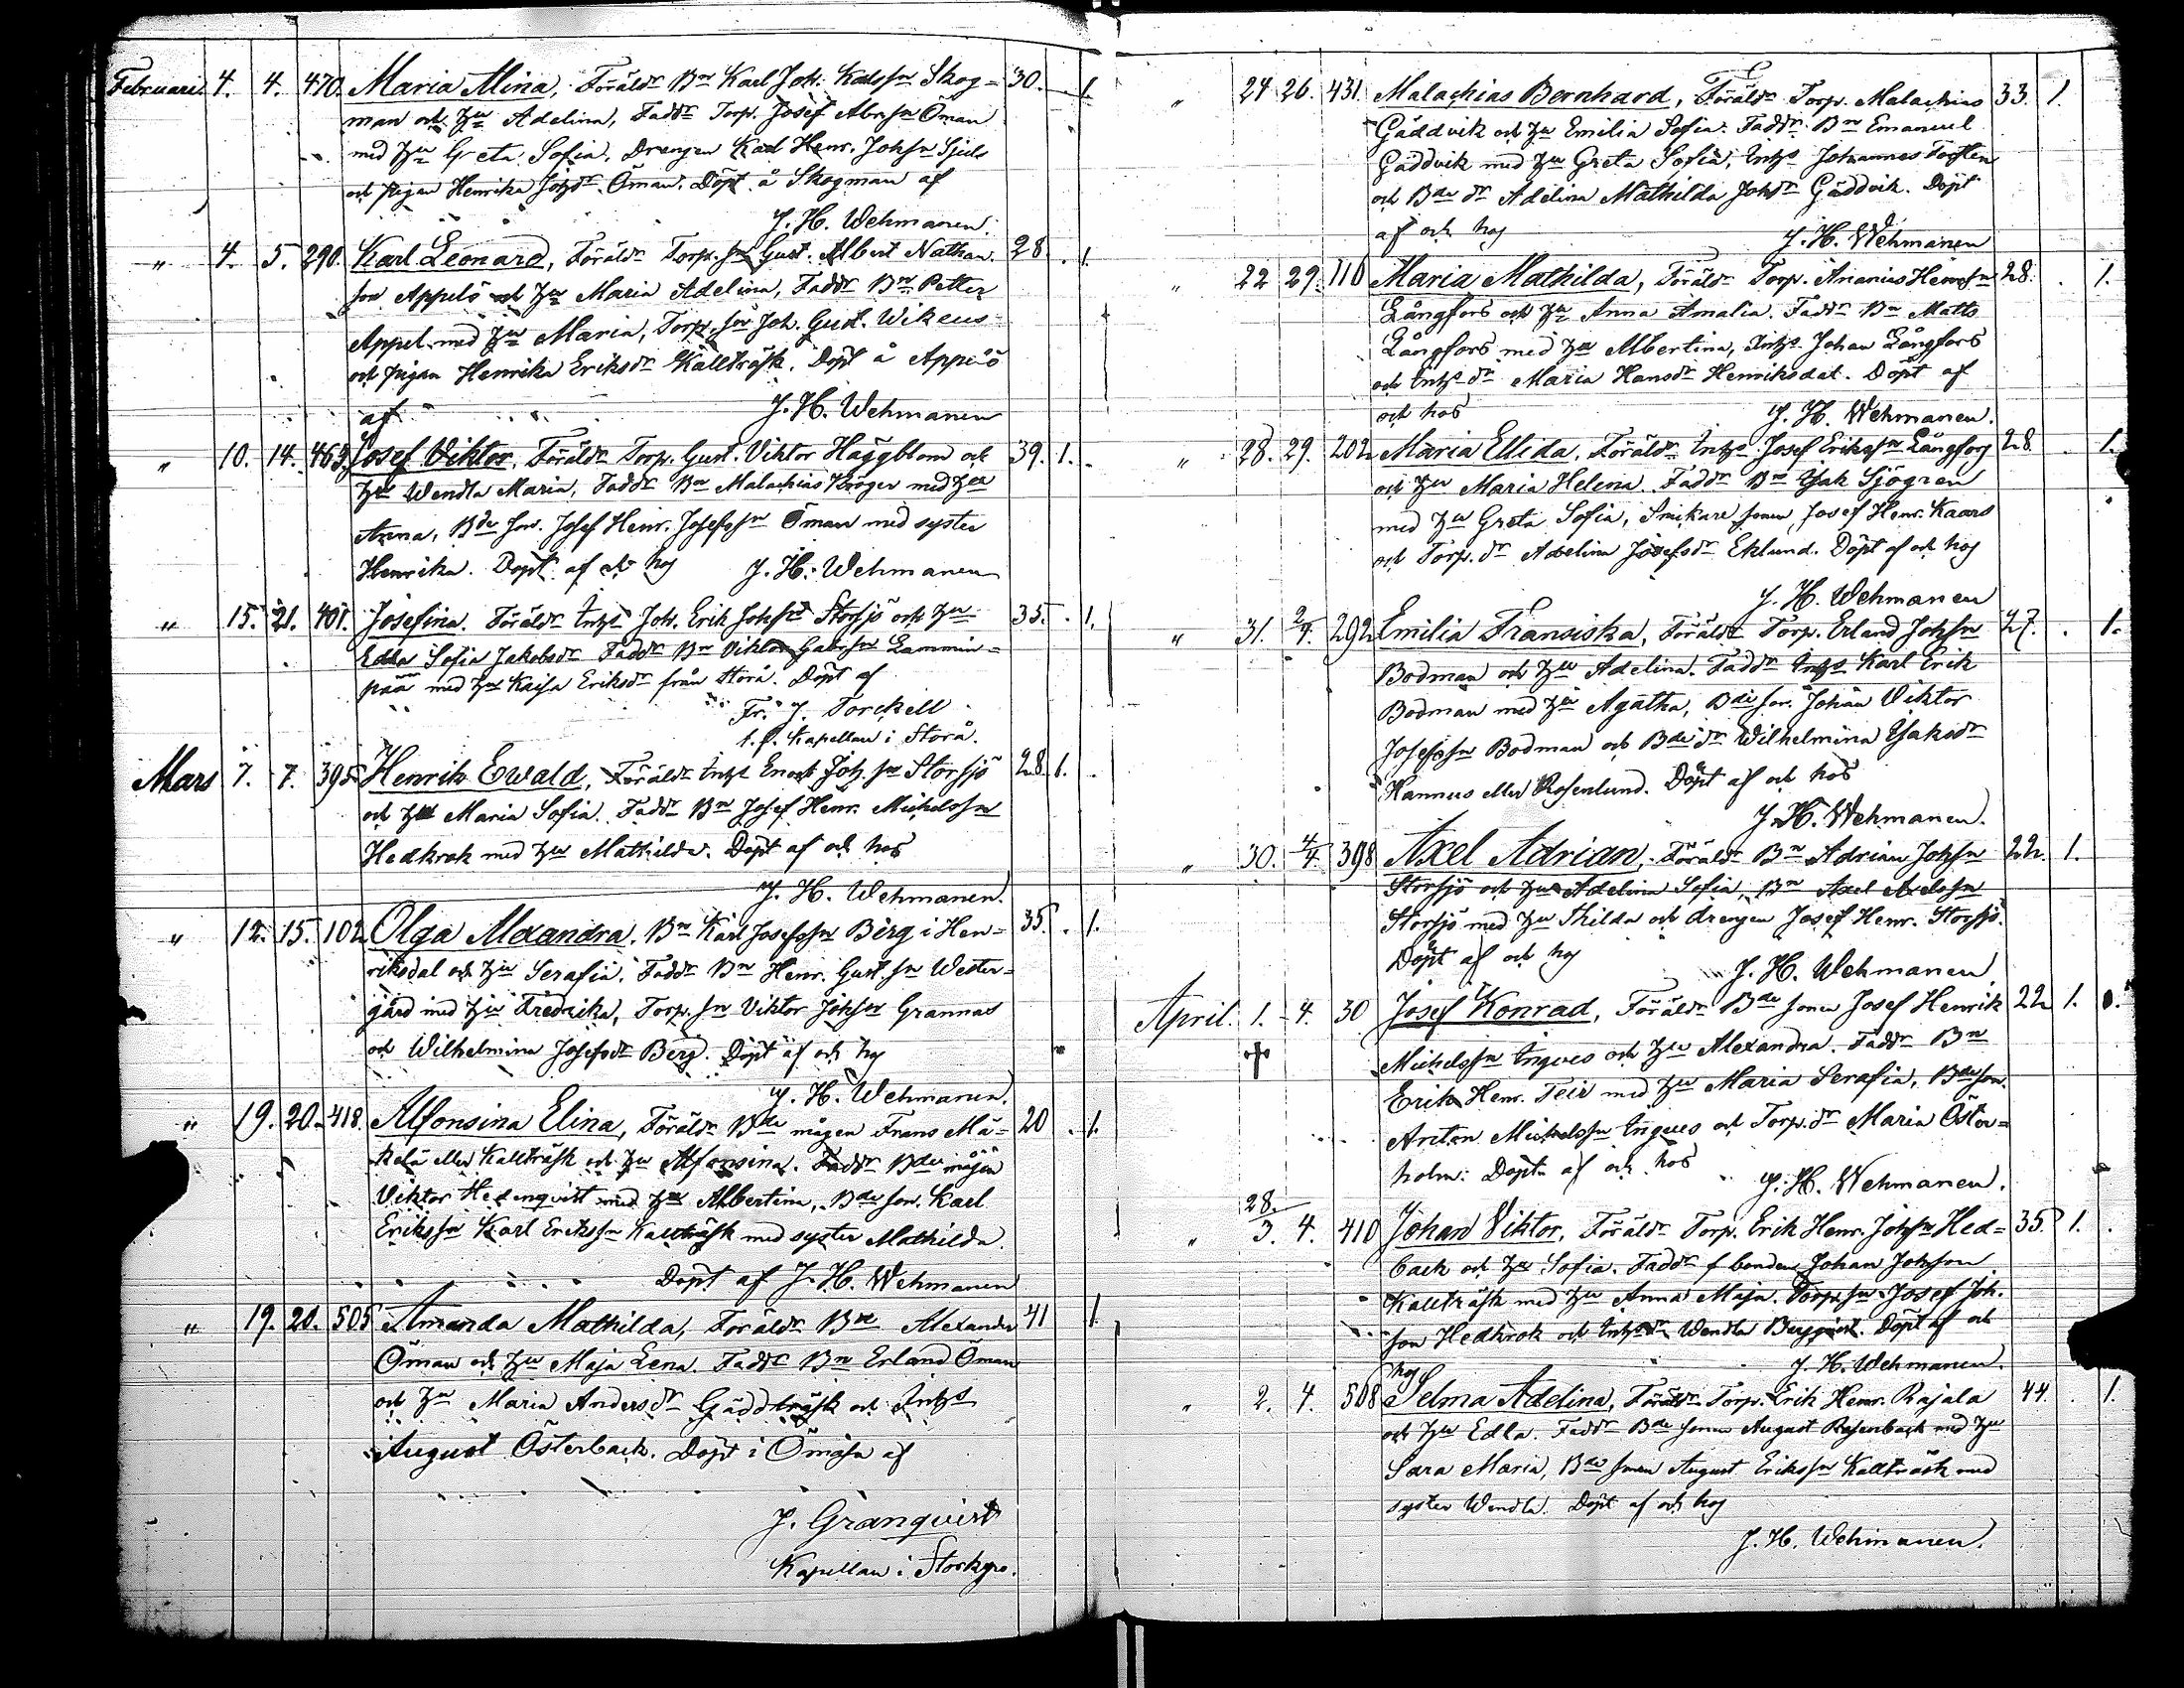 Februari. 4. 4. 470. Maria Alina, Föräldr Bn Karl Joh. Karlssn Skog= 30. 1.
man och hu Adelina, Faddr Torp. Josef Abrsn Öman
med hu Greta Sofia, Drengen Karl Henr. Johsn
och pigan Henrika Öman. Döpt å Skogman af
J. H. Wehmanen.
" 4. 5. 290. Karl Leonard, Föräldr Torp. sn Gust. Albert Nathan. 28. 1.
son Appelö och hu Maria Adelina, Faddr Bn Petter
Appel med hu Maria, Torp. son Joh. Gust. Wikeus
och pigan Henrika Eriksdr Källträsk. Döpt å Appelö
af J. H. Wehmanen
" 10. 14. 463. Josef Viktor, Föräldr Torp. Gust. Viktor Häggblom och 39. 1.
hu Wendla Maria, Faddr Bn Malachias Kröger med hu
Anna, Bde son. Josef Henr. Josefssn Öman med syster
Henrika. Döpt af och hos J. H. Wehmanen
" 15. 21. 401. Josefina. Föräldr Inhs Joh. Erik Johsn Storsjö och hu 35. 1.
Edla Sofia Jakobsdr Faddr Bn Viktor Gabrsn Lammin=
pää med hu Kajsa Eriksdr från Storå. Döpt af
Fr. J. Torckell
t. f. Kapellan i Storå.
Mars 7. 7. 395 Henrik Ewald, Föräldr Inhs Enok Joh. sn Storsjö 28. 1.
och hu Maria Sofia. Faddr Bn Josef Henr. Michelssn
Hedkrok med hu Mathilda. Döpt af och hos
J. H. Wehmanen.
" 12. 15. 102 Olga Alexandra. Bn Karl Josefssn Berg i Hen= 35. 1.
riksdal och hu Serafia. Faddr Bn Henr. Gust. sn Wester=
gård med hu Fredrika, Torp. sn Viktor Johsn Grannas
och Wilhelmina Josefsdr Berg. Döpt af och hos
J. H. Wehmanen.
" 19. 20. 418. Alfonsina Elina, Föräldr Bde mågen Frans Mä= 20 1.
kelä eller Källträsk och hu Alfonsina. Faddr Bde mågen
Viktor Hedenqvist med hu Albertina, Bde son. Karl
Erikssn Karl Erikssn Källträsk med syster Mathilda.
Döpt af J. H. Wehmanen
" 19. 20. 505 Amanda Mathilda, Föräldr Bn Alexander 41 1.
Öman och hu Maja Lena. Faddr Bn Erland Öman
och hu Maria Andersdr Gäddträsk och Inhs
August Österback. Döpt i Ömossa af
J. Granqvist
Kapellan i Storkyro.
" 24 26. 431. Malachias Bernhard, Föräldr Torp. Malachias 33. 1.
Gäddvik och hu Emilia Sofia. Faddr Bn Emanuel
Gäddvik med hu Greta Sofia, Inhs Johannes Torsten
och Bde dr Adelina Mathilda Johdr Gäddvik. Döpt
af och hos J. H. Wehmanen
" 22 29. 110 Maria Mathilda, Föräldr Torp. Ananias Henrsn 28. 1.
Långfors och hu Anna Amalia. Faddr Bn Matts
Långfors med hu Albertina, Inhs Johan Långfors
och Inhs dr Maria Hansdr Henriksdal. Döpt af
och hos J. H. Wehmanen.
" 28. 29. 202 Maria Ellida, Föräldr Inhs Josef Erikssn Långfors 28. 1.
och hu Maria Helena. Faddr Bn Isak Sjögren
med hu Greta Sofia, Snikare sonen Josef Henr. Kaars
och Torp. dr Adelina Josefsdr Eklund. Döpt af och hos
J. H. Wehmanen
" 31. 2/4. 292 Emilia Fransiska, Föräldr Torp. Erland Johsn 27. 1.
Bodman och hu Adelina. Faddr Inhs Karl Erik
Bodman med hu Agatha, Bde son. Johan Viktor
Josefssn Bodman och Bde dr Wilhelmina Isaksdr
Hannus eller Rosenlund. Döpt af och hos
J. H. Wehmanen.
" 30. 4/4. 398 Axel Adrian, Föräldr Bn Adrian Johsn 22. 1.
Storsjö och hu Adelina Sofia, Bn Axel Axelssn
Storsjö med hu Hilda och drengen Josef Henr. Storsjö.
Döpt af och hos J. H. Wehmanen
April. 1. 4. 30 Josef Konrad, Föräldr Bde sonen Josef Henrik 22 1.
† Michelssn Ingves och hu Alexandra. Faddr Bn
Erik Henr. Teir med hu Maria Serafia, Bde son.
Anton Michelssn Ingves och Torp. dr Maria Östen=
holm. Döpt af och hos J. H. Wehmanen.
" 28./3. 4. 410 Johan Viktor, Föräldr Torp. Erik Henr. Johsn Hed= 35. 1.
back och hu Sofia. Faddr f bonden Johan Johsson
Källträsk med hu Anna Maja. Torp. sn Josef Joh.
son Hedkrok och Inhs dr Wendla Bergqvist. Döpt af och
hos J. H. Wehmanen.
" 2. 4. 508 Selma Adelina, Föräldr Torp. Erik Henr. Rajala 44. 1.
och hu Edla. Faddr Bde sonen August Rosenback med hu
Sara Maria, Bde sonen August Erikssn Källträsk med
syster Wendla. Döpt af och hos
J. H. Wehmanen.